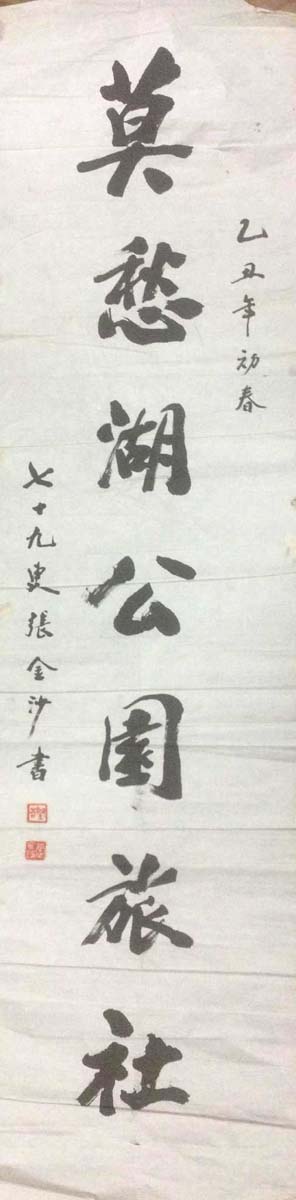 乙丑年初春
莫愁湖公園旅社
七十九叟張金沙書